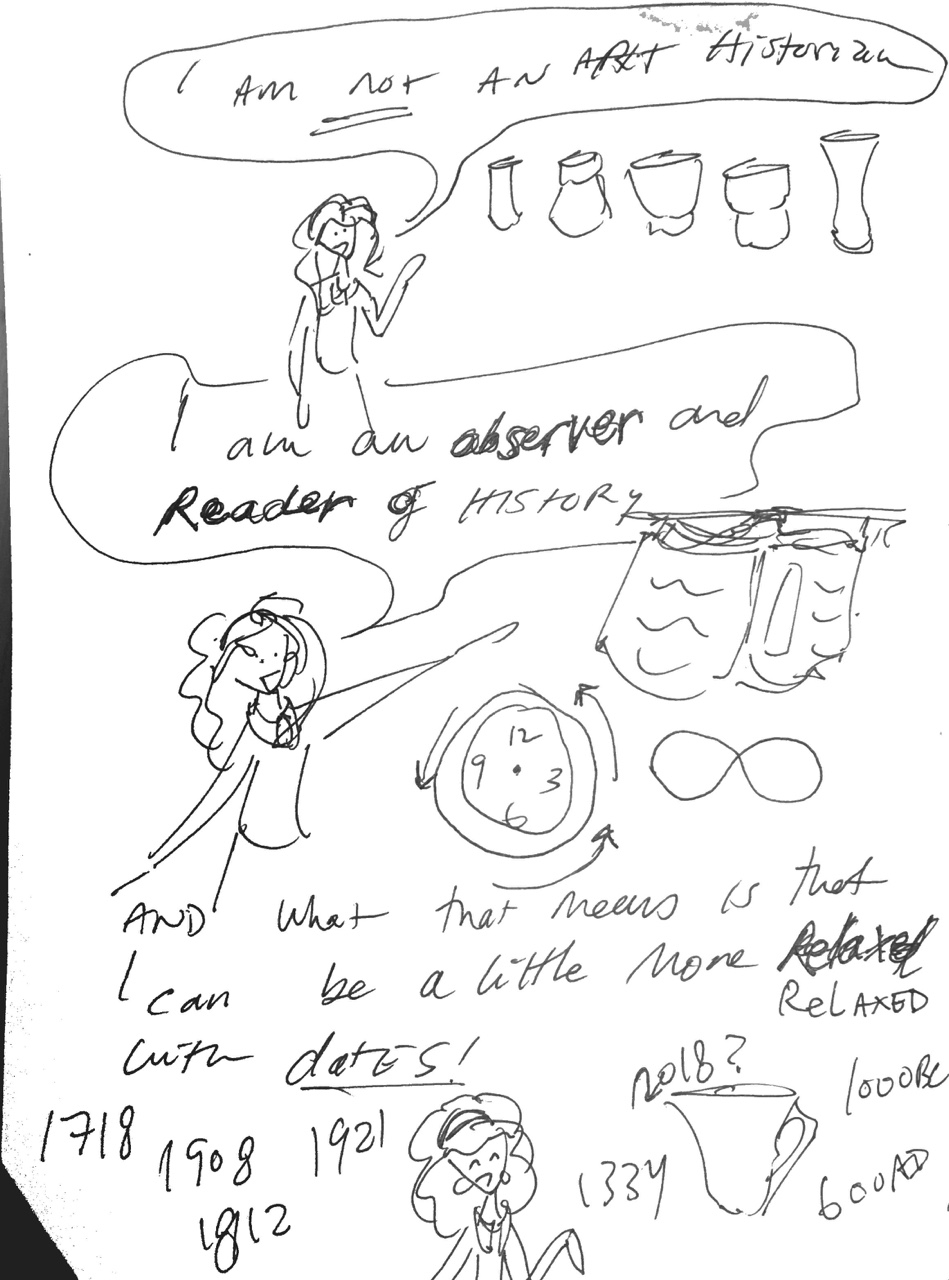 I AM not AN ARt Historian
I am an observer and
Reader of HISTORY
12
9 3
6
AND what that means is that
I can be a little more Relaxed
RelAXED
with datES!
2018?
1000BC
1718
1908
1921
1334
600AD
1812